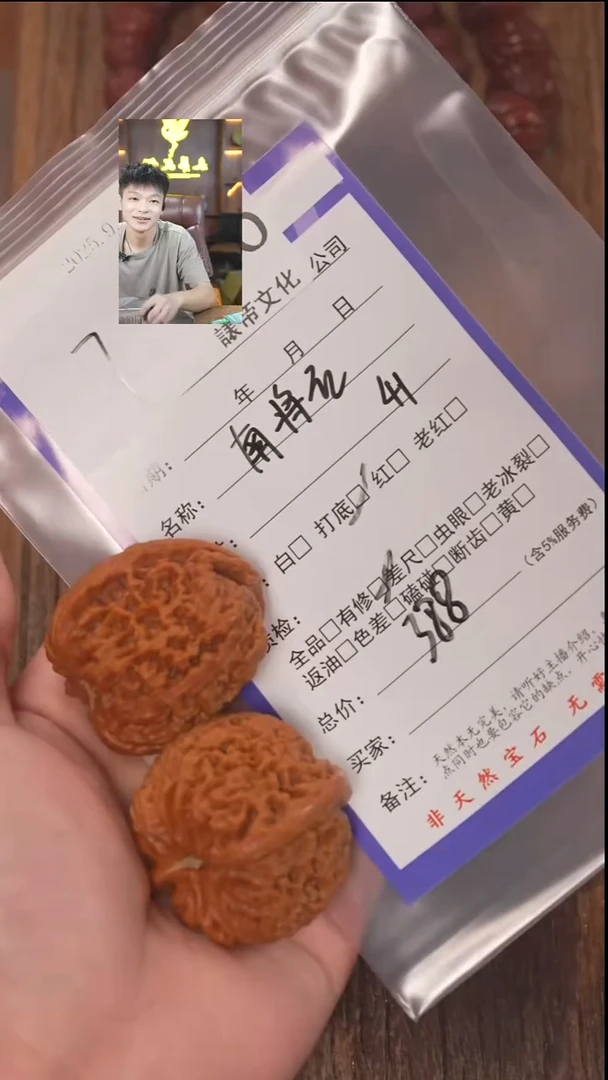 2025.9
公司
諘帝文化
年 月 日
名称: 南将石 41
白□ 打底□ 红□ 老红□
质检: 全品□有修□差尺□虫眼□老冰裂□
返油□色差□磕碰□断齿□黄□
总价: 388 (含5%服务费)
买家:
备注: 天然本无完美, 请听好主播介绍,
点同时也要包容它的缺点, 开心
非天然宝石 无